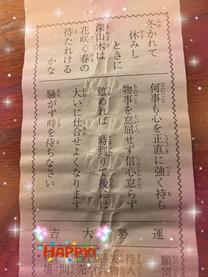 冬かれて
休みし
ときに
深山木は
花咲く春の
待たれける
かな
何事も心を正直に強く持ち
物事を怠屈せず信心怠らず
勉めれば 時到りて後には
大いに仕合せよくなります
騒がず時を待ちなさい
運勢大吉
願望
待人
HAPPY!